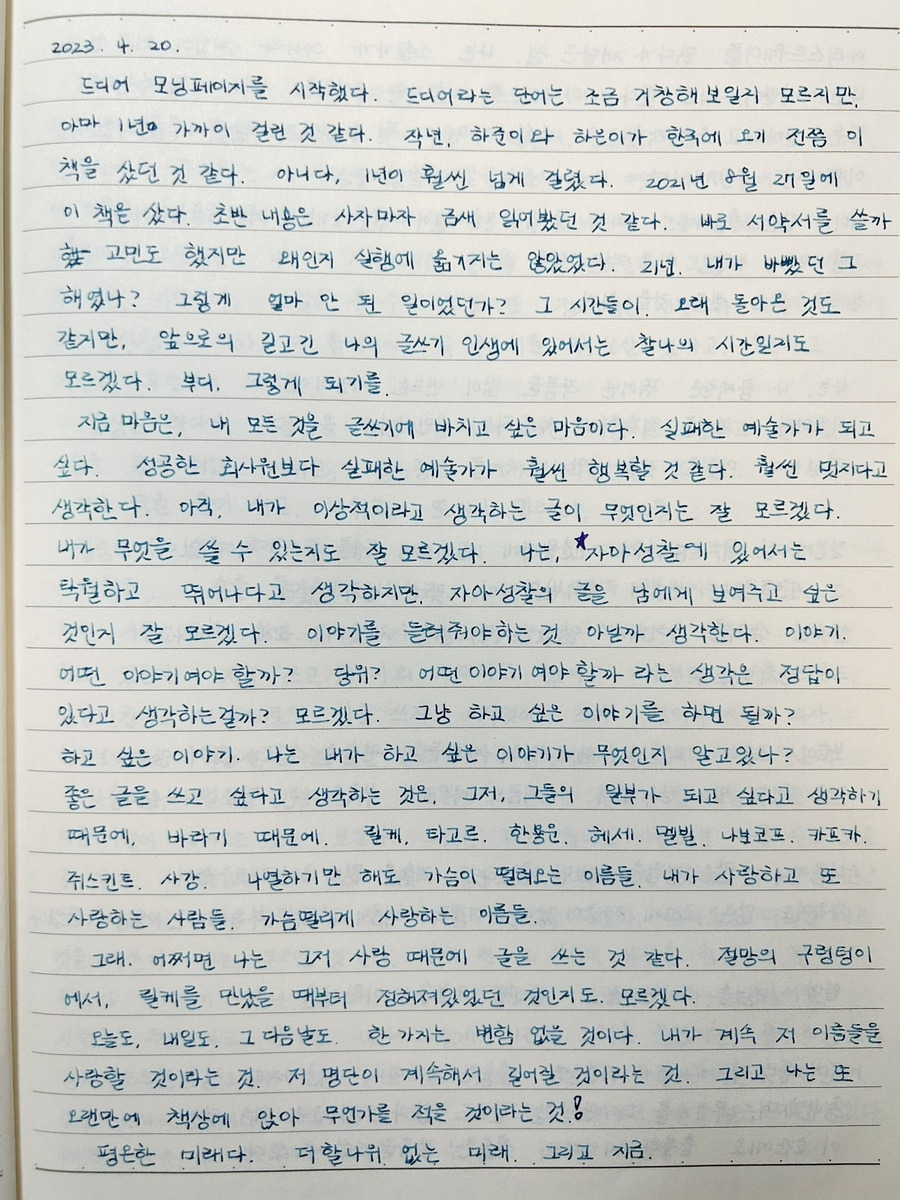 2023. 4. 20.
드디어 모닝페이지를 시작했다. 드디어라는 단어는 조금 거창해 보일지 모르지만,
아마 1년은 가까이 걸린 것 같다. 작년, 하준이와 하은이가 한국에 오기 전쯤 이
책을 샀던 것 같다. 아니다, 1년이 훨씬 넘게 걸렸다. 2021년 8월 27일에
이 책을 샀다. 초반 내용은 사자마자 금새 읽어봤던 것 같다. 바로 서약서를 쓸까
고민도 했지만 왜인지 실행에 옮겨지는 않았었다. 21년. 내가 바빴던 그
해였나? 그렇게 얼마 안 된 일이었던가? 그 시간들이. 오래 돌아온 것도
같지만, 앞으로의 길고긴 나의 글쓰기 인생에 있어서는 찰나의 시간일지도
모르겠다. 부디. 그렇게 되기를.
지금 마음은, 내 모든 것을 글쓰기에 바치고 싶은 마음이다. 실패한 예술가가 되고
싶다. 성공한 회사원보다 실패한 예술가가 훨씬 행복할 것 같다. 훨씬 멋지다고
생각한다. 아직, 내가 이상적이라고 생각하는 글이 무엇인지는 잘 모르겠다.
내가 무엇을 쓸 수 있는지도 잘 모르겠다. 나는, ★자아성찰에 있어서는
탁월하고 뛰어나다고 생각하지만, 자아성찰의 글을 남에게 보여주고 싶은
것인지 잘 모르겠다. 이야기를 들려줘야하는 것 아닐까 생각한다. 이야기.
어떤 이야기여야 할까? 당위? 어떤 이야기여야 할까 라는 생각은 정답이
있다고 생각하는걸까? 모르겠다. 그냥 하고 싶은 이야기를 하면 될까?
하고 싶은 이야기. 나는 내가 하고 싶은 이야기가 무엇인지 알고있나?
좋은 글을 쓰고 싶다고 생각하는 것은, 그저, 그들의 일부가 되고 싶다고 생각하기
때문에, 바라기 때문에. 릴케, 타고르. 한용운. 헤세. 멜빌. 나보코프. 카프카.
쥐스킨트. 사강. 나열하기만 해도 가슴이 떨려오는 이름들. 내가 사랑하고 또
사랑하는 사람들. 가슴떨리게 사랑하는 이름들.
그래. 어쩌면 나는 그저 사랑 때문에 글을 쓰는 것 같다. 절망의 구렁텅이
에서, 릴케를 만났을 때부터 정해져있었던 것인지도. 모르겠다.
오늘도, 내일도, 그 다음날도. 한 가지는 변함 없을 것이다. 내가 계속 저 이름들을
사랑할 것이라는 것. 저 명단이 계속해서 길어질 것이라는 것. 그리고 나는 또
오랜만에 책상에 앉아 무언가를 적을 것이라는 것!
평온한 미래다. 더할나위 없는 미래. 그리고 지금.